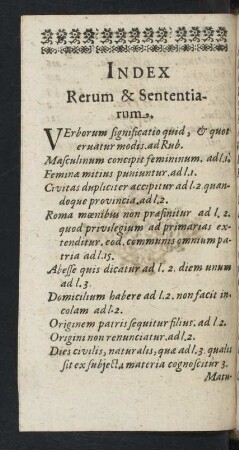 INDEX
Rerum & Sententia-
rum.
VErborum significatio quid, & quot
eruatur modis. ad Rub.
Masculinum concipit femininum. ad l.1.
Feminæ mitius puniuntur. ad l.1.
Civitas dupliciter accipitur ad l.2. quan-
doque provincia. ad l.2.
Roma mœnibus non præfinitur ad l. 2.
quod privilegium ad primarias ex-
tenditur. eod. communis omnium pa-
tria ad l.15.
Abesse quis dicatur ad l. 2. diem unum
ad l.3.
Domicilium habere ad l.2. non facit in-
colam ad l.2.
Originem patris sequitur filius. ad l.2.
Origini non renunciatur. ad l.2.
Dies civilis, naturalis, quæ ad l.3. qualis
sit ex subjecta materia cognoscitur 3.
Matu-